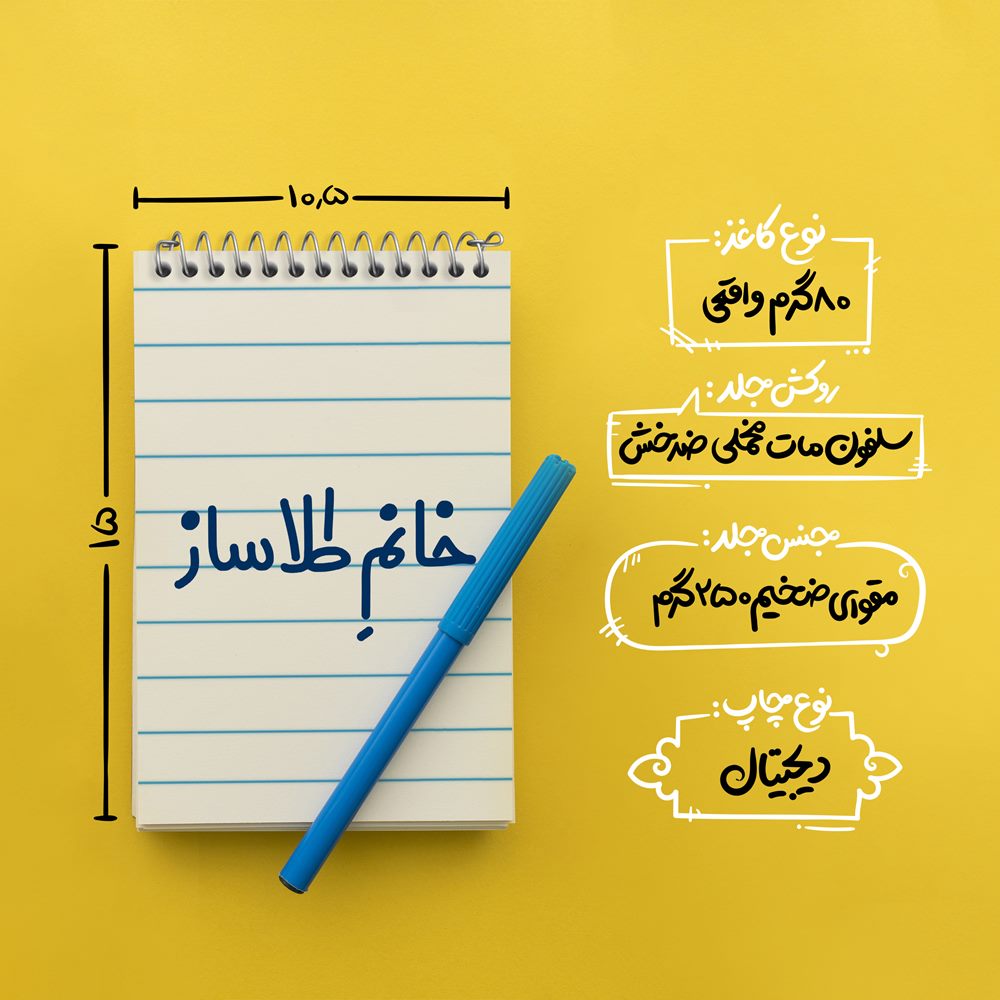 ۱۰٫۵
۱۵
خانمِ طلاساز
نوع کاغذ:
۸۰ گرم واقعی
روکش جلد:
سلفون مات مخملی ضدخش
جنس جلد:
مقوای ضخیم ۲۵۰ گرم
نوع چاپ:
دیجیتال